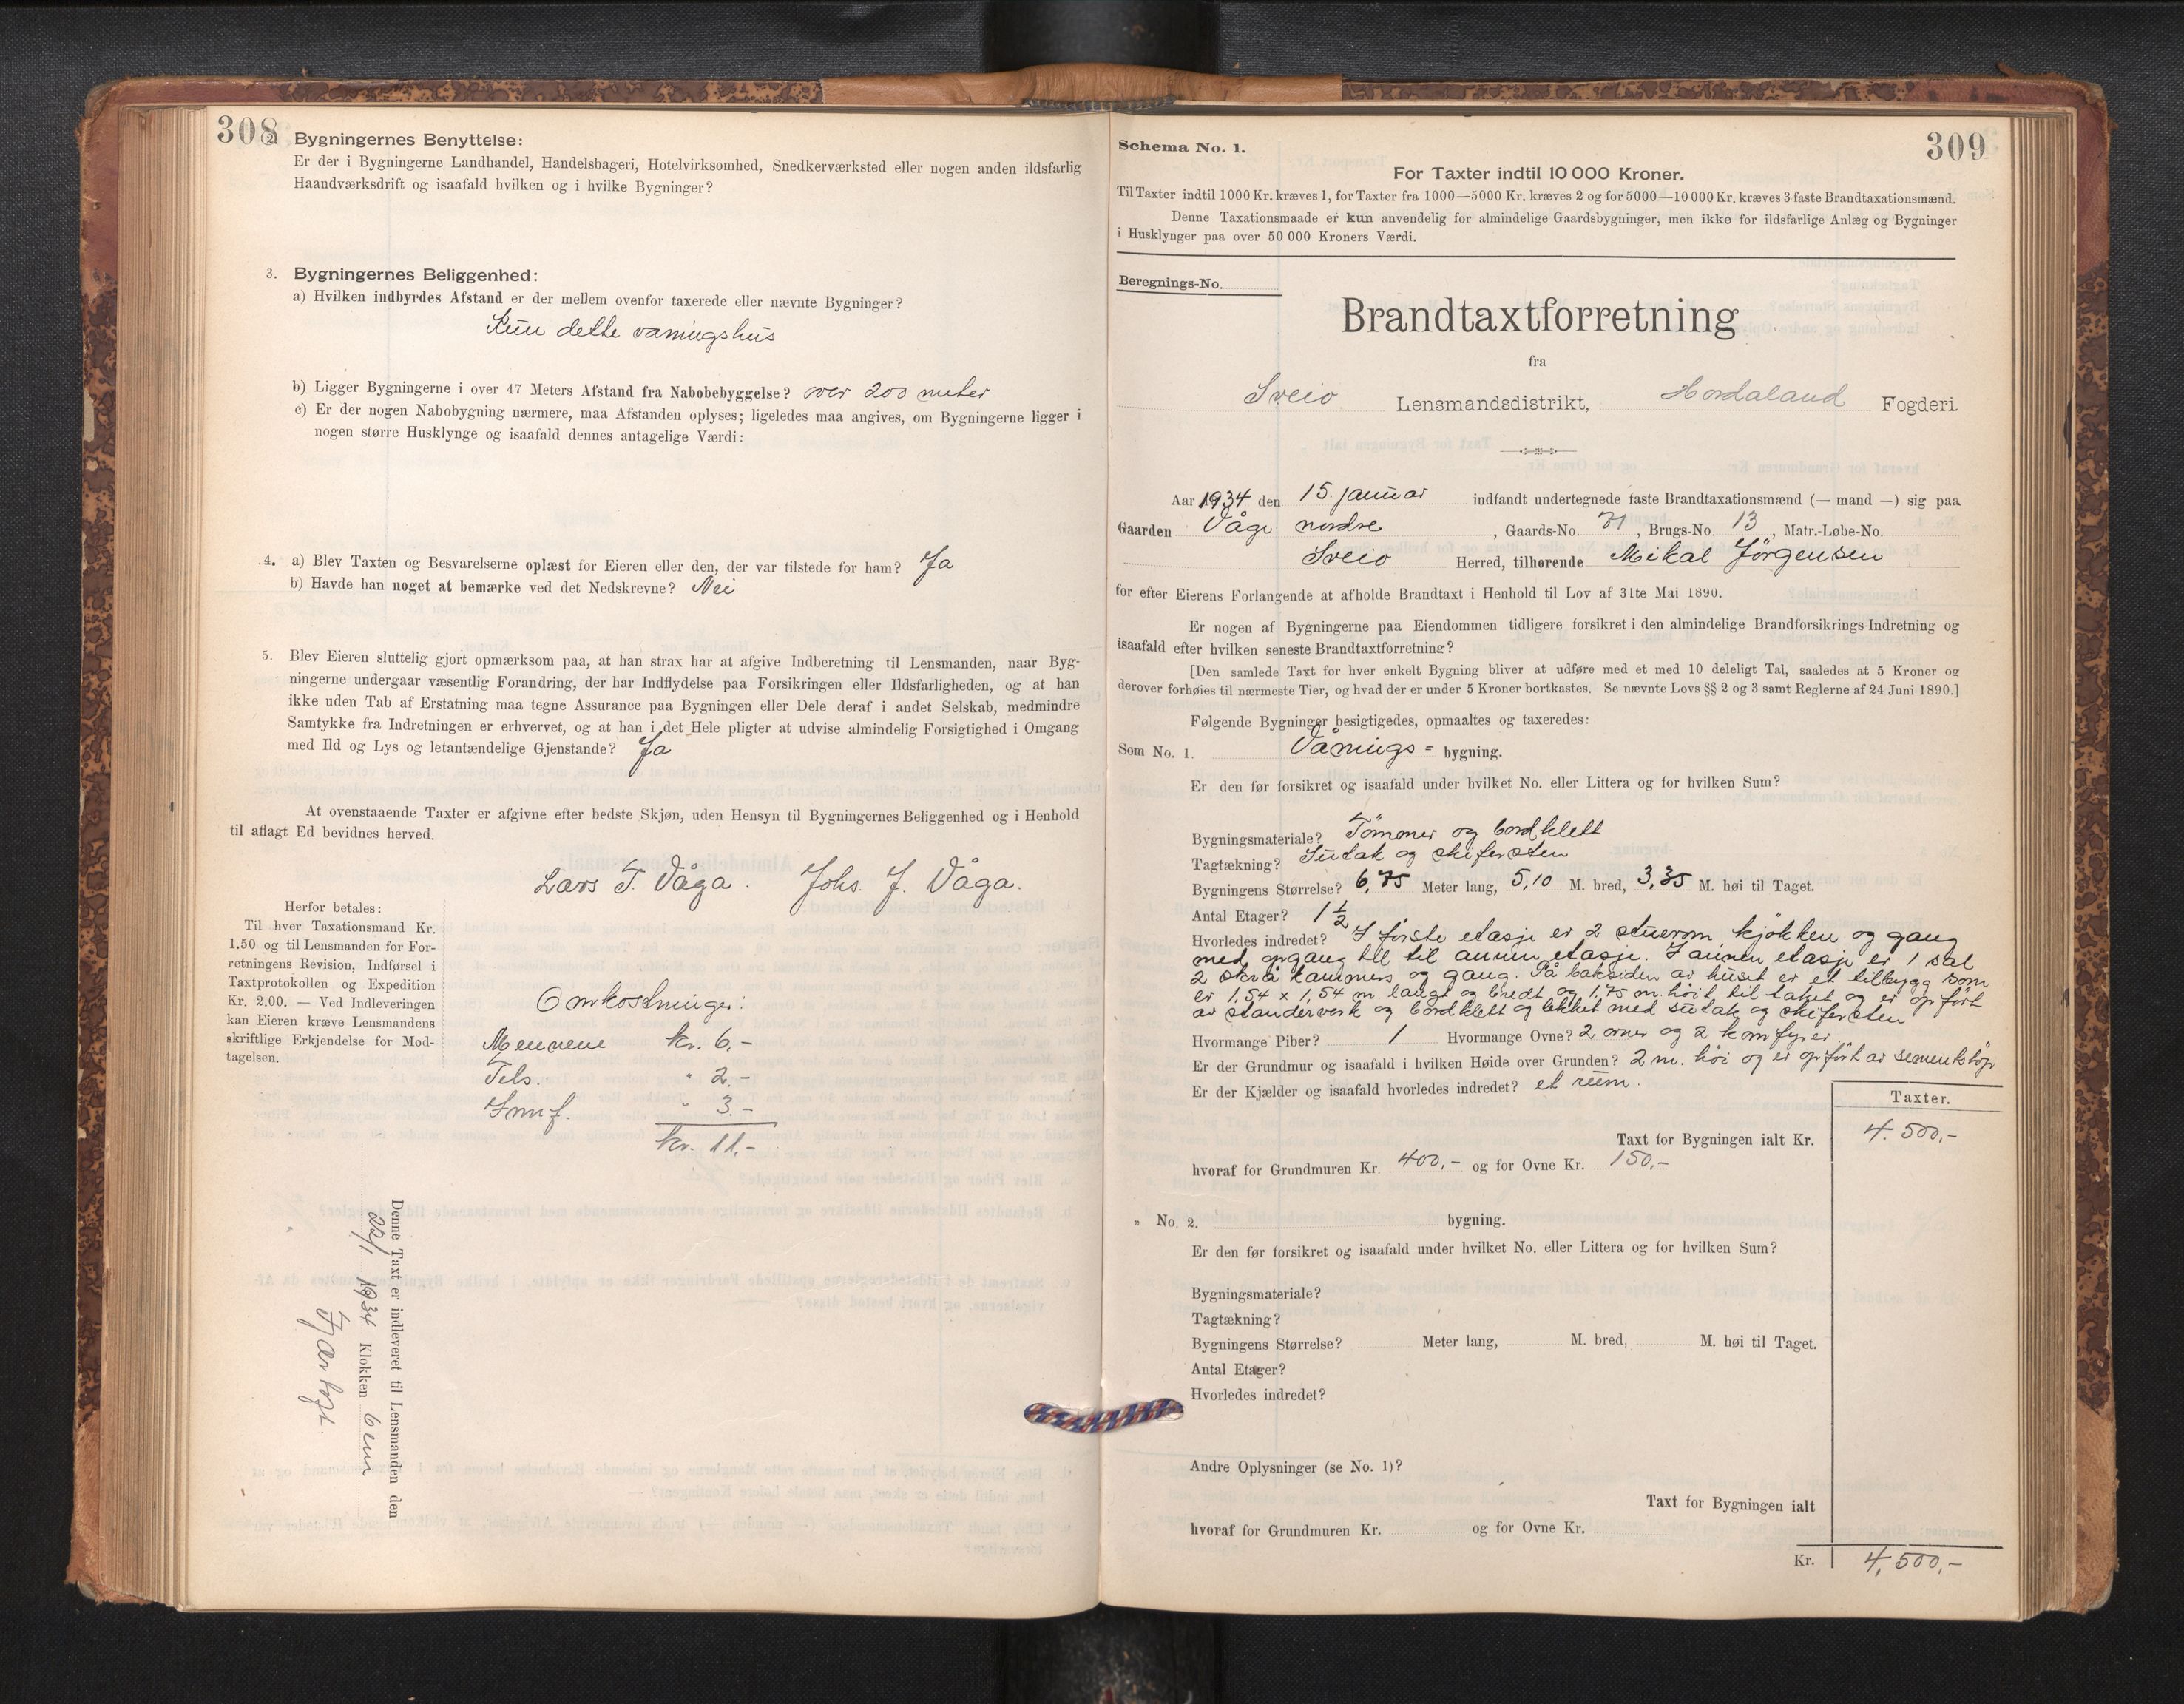 308
2. Bygningernes Benyttelse:
Er der i Bygningerne Landhandel, Handelsbageri, Hotelvirksomhed, Snedkerværksted eller nogen anden ildsfarlig
Haandværksdrift og isaafald hvilken og i hvilke Bygninger?
3. Bygningernes Beliggenhed:
a) Hvilken indbyrdes Afstand er der mellem ovenfor taxerede eller nævnte Bygninger?
Kun dette vaningshus
b) Ligger Bygningerne i over 47 Meters Afstand fra Nabobebyggelse? over 200 meter
c) Er der nogen Nabobygning nærmere, maa Afstanden oplyses; ligeledes maa angives, om Bygningerne ligger i
nogen større Husklynge og isaafald dennes antagelige Værdi:
4. a) Blev Taxten og Besvarelserne oplæst for Eieren eller den, der var tilstede for ham? Ja
b) Havde han noget at bemærke ved det Nedskrevne? Nei
5. Blev Eieren sluttelig gjort opmærksom paa, at han strax har at afgive Indberetning til Lensmanden, naar Byg-
ningerne undergaar væsentlig Forandring, der har Indflydelse paa Forsikringen eller Ildsfarligheden, og at han
ikke uden Tab af Erstatning maa tegne Assurance paa Bygningen eller Dele deraf i andet Selskab, medmindre
Samtykke fra Indretningen er erhvervet, og at han i det Hele pligter at udvise almindelig Forsigtighed i Omgang
med Ild og Lys og letantændelige Gjenstande? Ja
At ovenstaaende Taxter er afgivne efter bedste Skjøn, uden Hensyn til Bygningernes Beliggenhed og i Henhold
til aflagt Ed bevidnes herved.
Lars T. Våga. Johs. J. Våga.
Herfor betales:
Til hver Taxationsmand Kr.
1.50 og til Lensmanden for For-
retningens Revision, Indførsel i
Taxtprotokollen og Expedition
Kr. 2.00. — Ved Indleveringen
kan Eieren kræve Lensmandens
skriftlige Erkjendelse for Mod-
tagelsen.
Omkostninger:
Mennene kr. 6,-
Tels. " 2.-
Innf. " 3.-
kr. 11.-
Denne Taxt er indleveret til Lensmanden den
22/1 1934 Klokken 6 em
Fjærtoft.
309
Schema No. 1.
For Taxter indtil 10 000 Kroner.
Til Taxter indtil 1000 Kr. kræves 1, for Taxter fra 1000—5000 Kr. kræves 2 og for 5000—10 000 Kr. kræves 3 faste Brandtaxationsmænd.
Denne Taxationsmaade er kun anvendelig for almindelige Gaardsbygninger, men ikke for ildsfarlige Anlæg og Bygninger
i Husklynger paa over 50 000 Kroners Værdi.
Beregnings-No.
Brandtaxtforretning
fra
Sveio Lensmandsdistrikt, Hordaland Fogderi.
Aar 1934 den 15. januar indfandt undertegnede faste Brandtaxationsmænd (— mand —) sig paa
Gaarden Våge nordre, Gaards-No. 71, Brugs-No. 13, Matr.-Løbe-No.
Sveio Herred, tilhørende Mikal Jörgensen
for efter Eierens Forlangende at afholde Brandtaxt i Henhold til Lov af 31te Mai 1890.
Er nogen af Bygningerne paa Eiendommen tidligere forsikret i den almindelige Brandforsikrings-Indretning og
isaafald efter hvilken seneste Brandtaxtforretning?
[Den samlede Taxt for hver enkelt Bygning bliver at udføre med et med 10 deleligt Tal, saaledes at 5 Kroner og
derover forhøies til nærmeste Tier, og hvad der er under 5 Kroner bortkastes. Se nævnte Lovs §§ 2 og 3 samt Reglerne af 24 Juni 1890.]
Følgende Bygninger besigtigedes, opmaaltes og taxeredes:
Som No. 1. Vånings = bygning.
Er den før forsikret og isaafald under hvilket No. eller Littera og for hvilken Sum?
Bygningsmateriale? Tömmer og bordklett
Tagtækning? Sutak og skifersten
Bygningens Størrelse? 6,75 Meter lang, 5,10 M. bred, 3,35 M. høi til Taget.
Antal Etager? 1 1/2
Hvorledes indredet? I förste etasje er 2 stuerom, kjökken og gang
med opgang till til annen etasje. I annen etasje er 1 sal
2 skrå kammers og gang. På baksiden av huset er et tilbygg som
er 1,54 x 1,54 m. langt og bredt og 1,75 m. höit til taket og er opfört
av standerverk og bordklett og tekket med sutak og skifersten
Hvormange Piber? 1 Hvormange Ovne? 2 ovner og 2 komfyrer
Er der Grundmur og isaafald i hvilken Høide over Grunden? 2 m. höi og er opfört av sementstöp
Er der Kjælder og isaafald hvorledes indredet? et rum.
Taxter.
Taxt for Bygningen ialt Kr. 4.500,-
hvoraf for Grundmuren Kr. 400,- og for Ovne Kr. 150,-
„ No. 2. bygning.
Er den før forsikret og isaafald under hvilket No. eller Littera og for hvilken Sum?
Bygningsmateriale?
Tagtækning?
Bygningens Størrelse? Meter lang, M. bred, M. høi til Taget.
Antal Etager?
Hvorledes indredet?
Andre Oplysninger (se No. 1)?
Taxt for Bygningen ialt
hvoraf for Grundmuren Kr. og for Ovne Kr.
Kr. 4,500,-